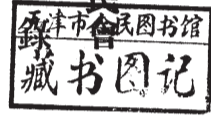 天津市人民图书馆
藏书图记
會
錄